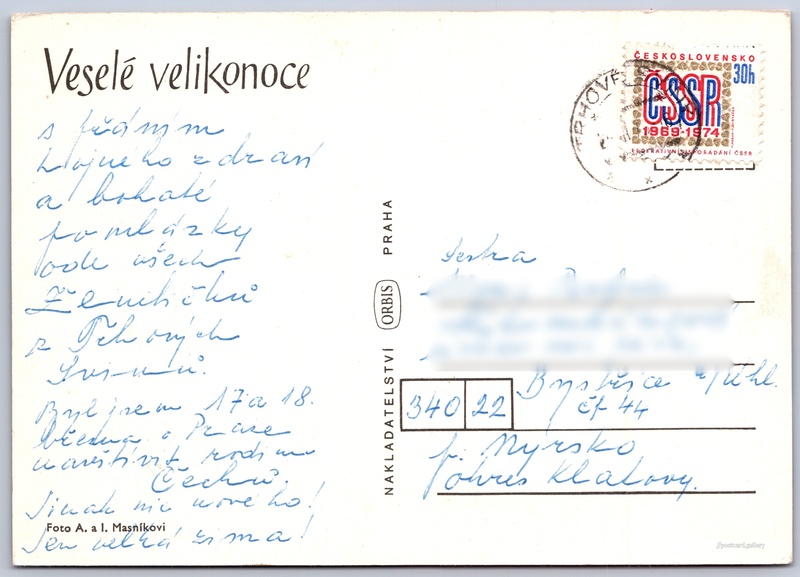 Veselé velikonoce
s přáním
hojného zdraví
a bohaté
pomlázky
ode všech
z Trhových
Svinů.
Byl jsem 17 a 18.
března v Praze
navštívit rodinu
Čechů.
Jinak nic nového!
Jen velká zima!
Foto A. a I. Masníkovi
NAKLADATELSTVÍ ORBIS PRAHA
ČESKOSLOVENSKO
30h
ČSSR
1969-1974
FEDERATIVNÍ USPOŘÁDÁNÍ ČSSR
TRHOVÉ
Sestra
Bystřice n/Úhl.
čp 44
340 22
p. Nýrsko
okres Klatovy.